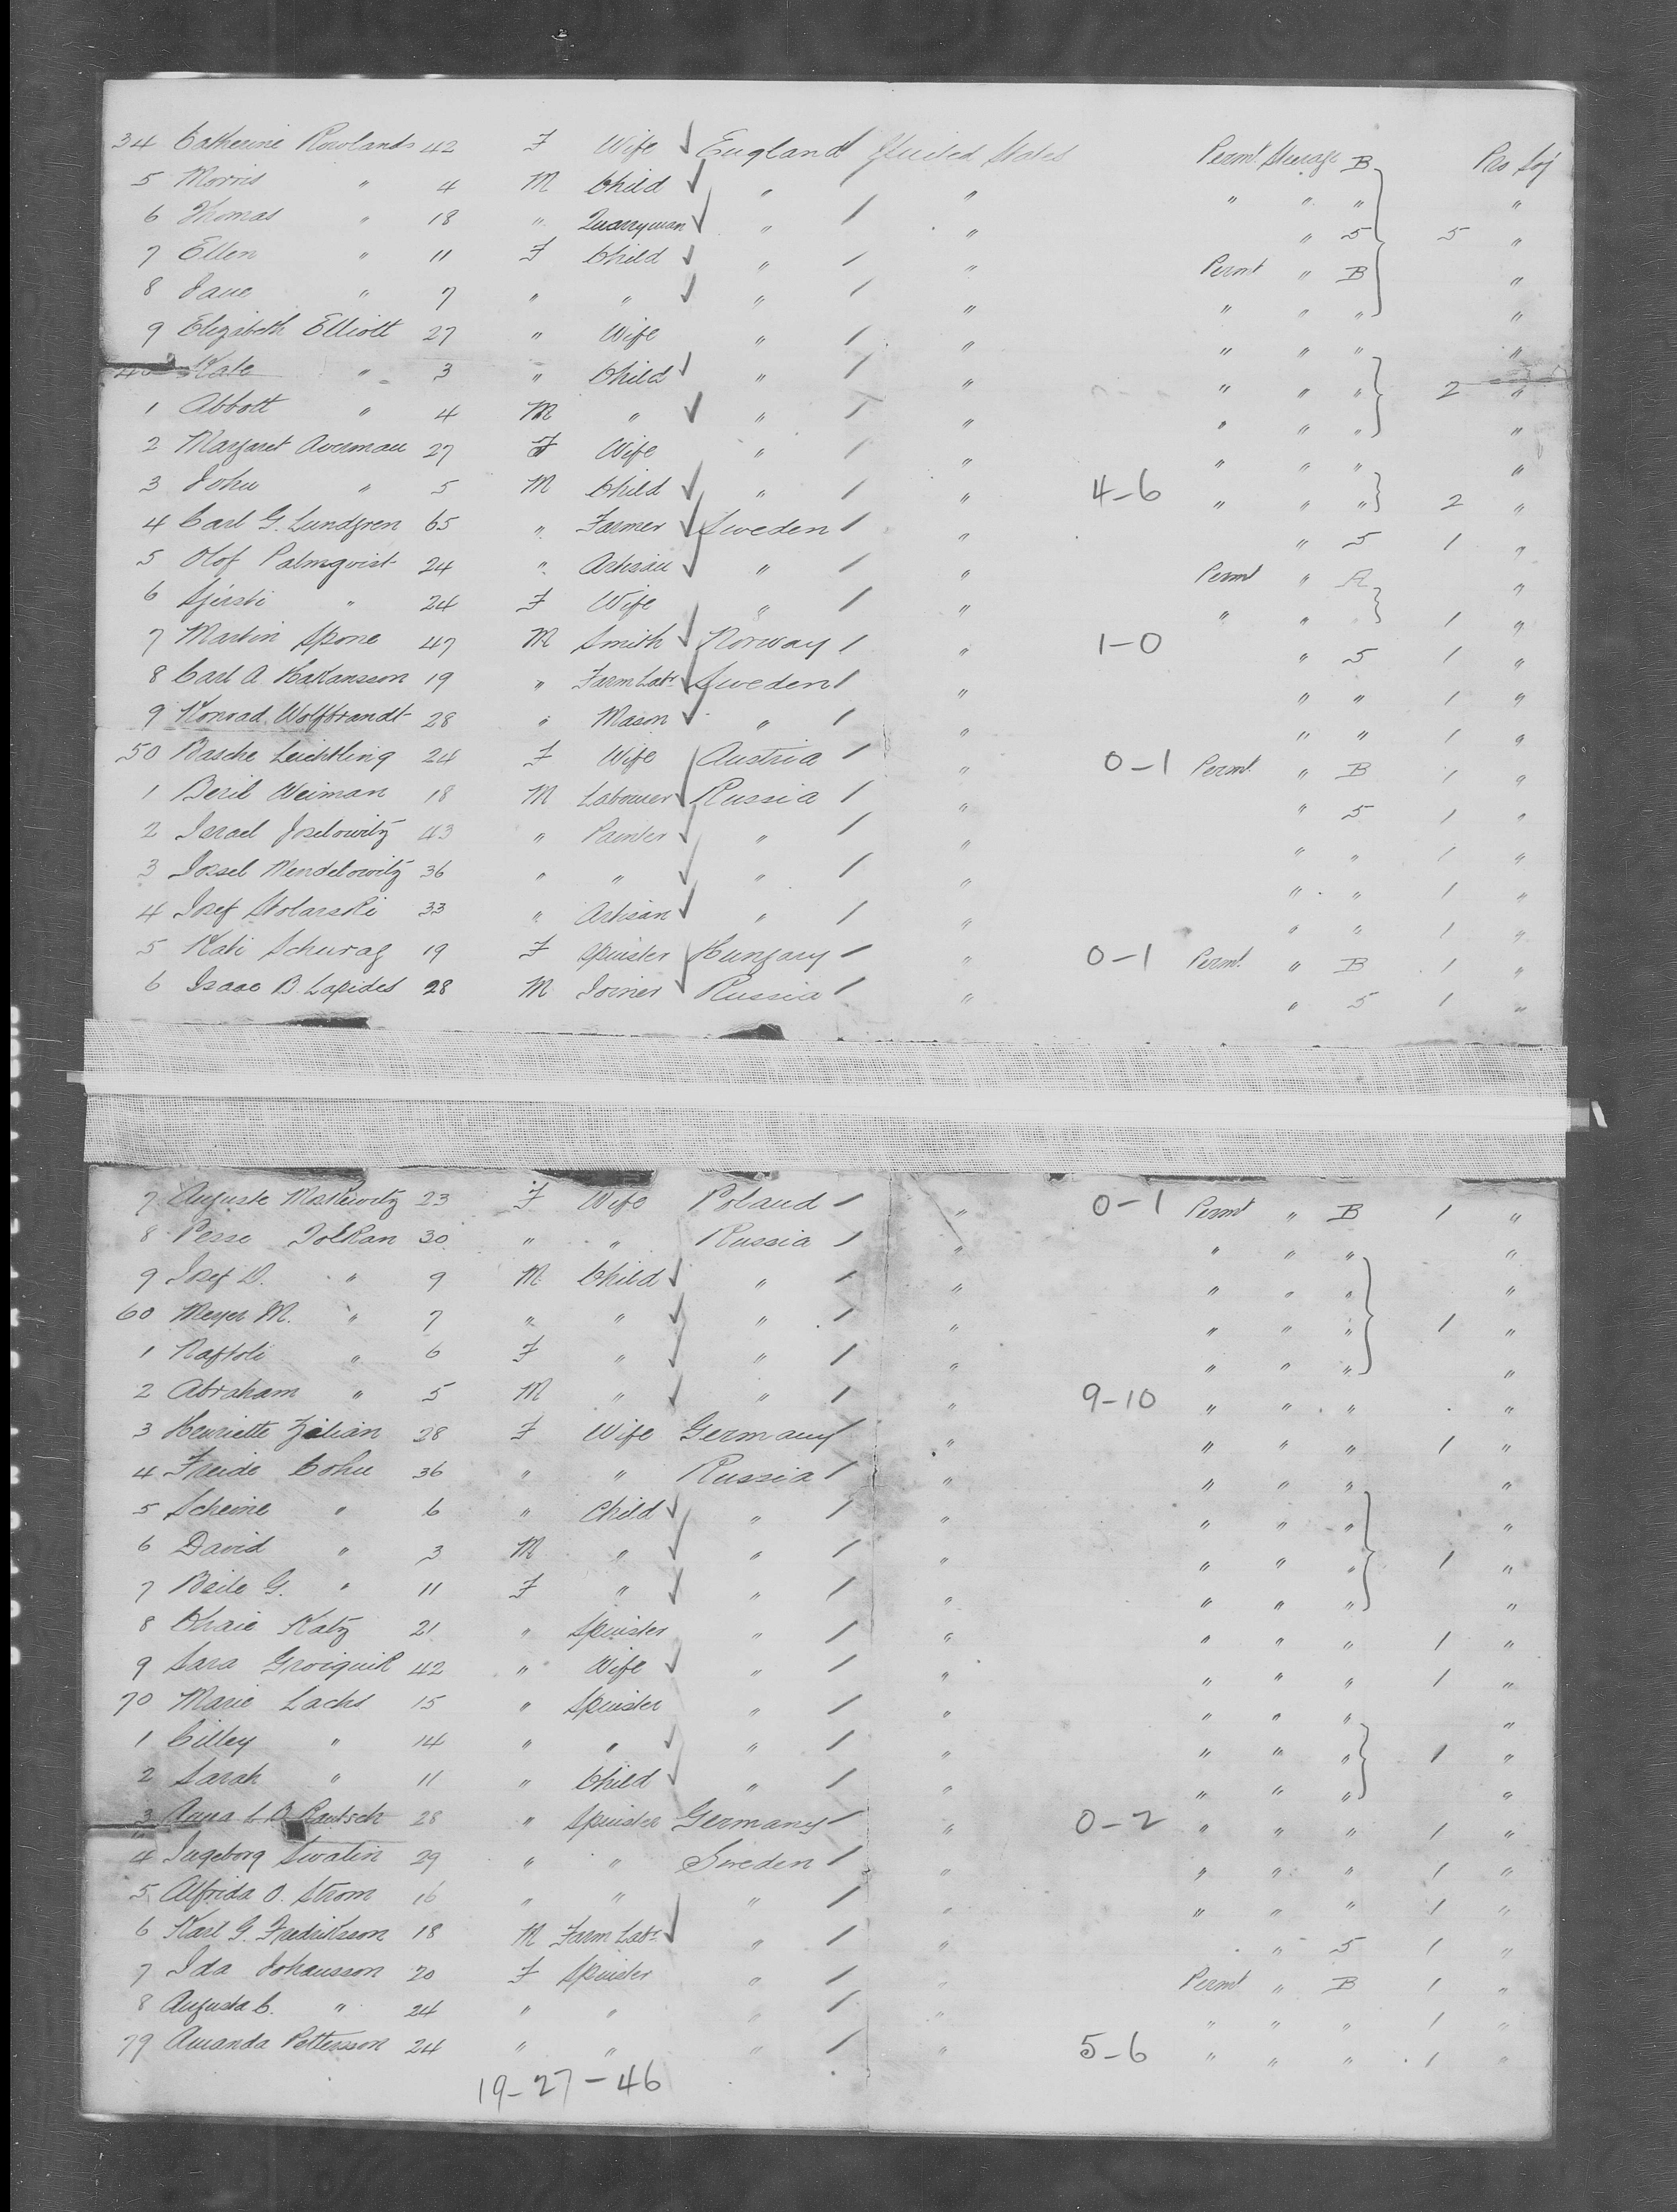 34 Catherine Rowlands 42 F Wife England / United States Permt Steerage B Pro Soj
5 Morris " 4 M Child " / " " " " "
6 Thomas " 18 " Quarryman " / " " 5 5 "
7 Ellen " 11 F Child " / " Permt " B "
8 Jane " 7 " " " / " " " " "
9 Elizabeth Elliott 27 " Wife " / " " " " "
40 Kate " 3 " Child " / " " " " 2 "
1 Abbott " 4 M " " / " " " " "
2 Margaret 27 F Wife " / " " " " "
3 John " 5 M Child " / " 4-6 " " " 2 "
4 Carl G. Lundgren 65 " Farmer Sweden / " " 5 1 "
5 Olof Palmqvist 24 " Artisan " / " Permt " A "
6 " 24 F Wife " / " " " 1 "
7 Martin Spone 47 M Smith Norway / " 1-0 " 5 1 "
8 Carl A Hakansson 19 " Farm Labr Sweden / " " " 1 "
9 Konrad Wolfbrandt 28 " Mason " / " " " 1 "
50 Basche Leichtling 24 F Wife Austria / " 0-1 Permt " B 1 "
1 Beril Weiman 18 M Labourer Russia / " " 5 1 "
2 Israel Joselowitz 43 " Painter " / " " " 1 "
3 Jossel Mendelowitz 36 " " " / " " " 1 "
4 Josef Stolarski 33 " Artisan " / " " " 1 "
5 Kati Schurag 19 F Spinster Hungary / " 0-1 Permt " B 1 "
6 Isaac B. Lapides 28 M Joiner Russia / " " 5 1 "
7 Auguste Maskewitz 23 F Wife Poland / " 0-1 Permt " B 1 "
8 Pesse Tolkan 30 " " Russia / " " " " "
9 Josef D. " 9 M Child " / " " " " "
60 Meyer M. " 7 " " " / " " " " 1 "
1 Naftoli " 6 F " " / " " " " "
2 Abraham " 5 M " " / " 9-10 " " " "
3 Henriette Zilian 28 F Wife Germany / " " " " 1 "
4 Freide Cohn 36 " " Russia / " " " " "
5 Scheine " 6 " Child " / " " " " "
6 David " 3 M " " / " " " " 1 "
7 Beile G. " 11 F " " / " " " " "
8 Chaie Katz 21 " Spinster " / " " " " 1 "
9 Sara 42 " Wife " / " " " " 1 "
70 Marie Lachs 15 " Spinster " / " " " " "
1 Cilley " 14 " " " / " " " " 1 "
2 Sarah " 11 " Child " / " " " " "
3 Anna 28 " Spinster Germany / " 0-2 " " " 1 "
4 Ingeborg Swalin 29 " " Sweden / " " " " 1 "
5 Alfrida O. Strom 16 " " " / " " " " 1 "
6 Karl G. Fredriksson 18 M Farm Labr " / " " 5 1 "
7 Ida Johansson 20 F Spinster " / " Permt " B 1 "
8 Augusta C. " 24 " " " / " " " " 1 "
79 Amanda Pettersson 24 " " " / " 5-6 " " " 1 "
19-27-46